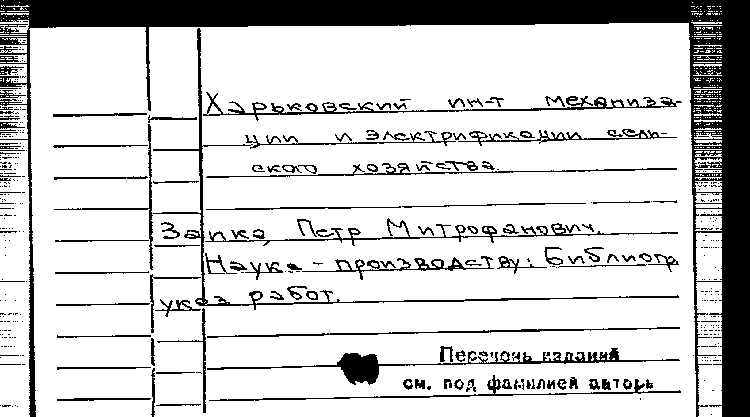 Харьковский ин-т механиза-
ции и электрификации сель-
ского хозяйства.
Заика, Петр Митрофанович.
Наука - производству: Библиогр.
указ работ.
Перечень изданий
см. под фамилией автора